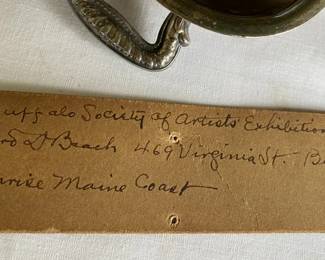 uffalo Society of Artists Exhibition
rd D Beach 469 Virginia St. B
nrise Maine Coast